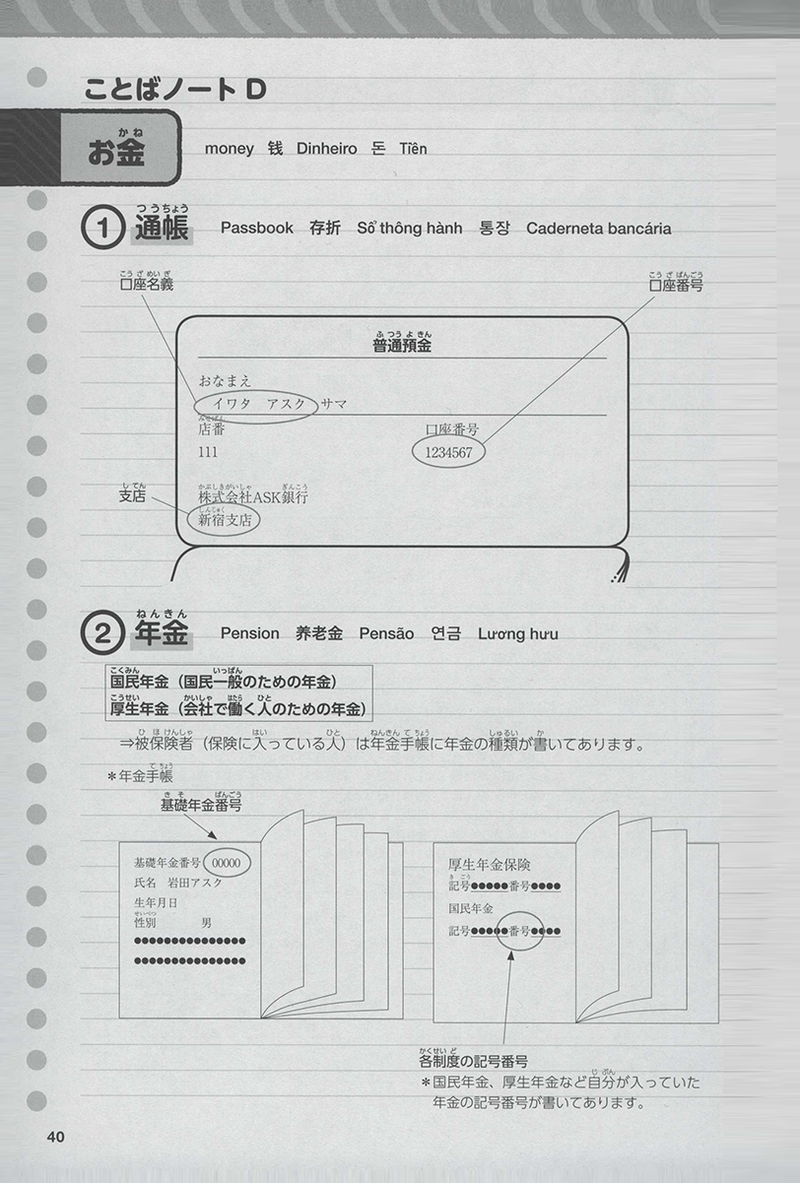 ことばノート D
かね
お金 money 钱 Dinheiro 돈 Tiền
つうちょう
① 通帳 Passbook 存折 Sổ thông hành 통장 Caderneta bancária
こうざめいぎ こうざばんごう
口座名義 口座番号
ふつうよきん
普通預金
おなまえ
イワタ アスク サマ
みせばん
店番 口座番号
111 1234567
してん
支店
かぶしきがいしゃ ぎんこう
株式会社ASK銀行
しんじゅく
新宿支店
ねんきん
② 年金 Pension 养老金 Pensão 연금 Lương hưu
こくみん いっぱん
国民年金（国民一般のための年金）
こうせい かいしゃ はたら ひと
厚生年金（会社で働く人のための年金）
ひほけんしゃ はい ひと ねんきんてちょう しゅるい か
⇒被保険者（保険に入っている人）は年金手帳に年金の種類が書いてあります。
てちょう
＊年金手帳
きそ ばんごう
基礎年金番号
基礎年金番号 00000
氏名 岩田アスク
生年月日
せいべつ
性別 男
●●●●●●●●●●●●●●●
●●●●●●●●●●●●●●●
厚生年金保険
きごう
記号●●●●●番号●●●●
国民年金
記号●●●●●番号●●●●
かくせいど
各制度の記号番号
じぶん
＊国民年金、厚生年金など自分が入っていた
年金の記号番号が書いてあります。
40